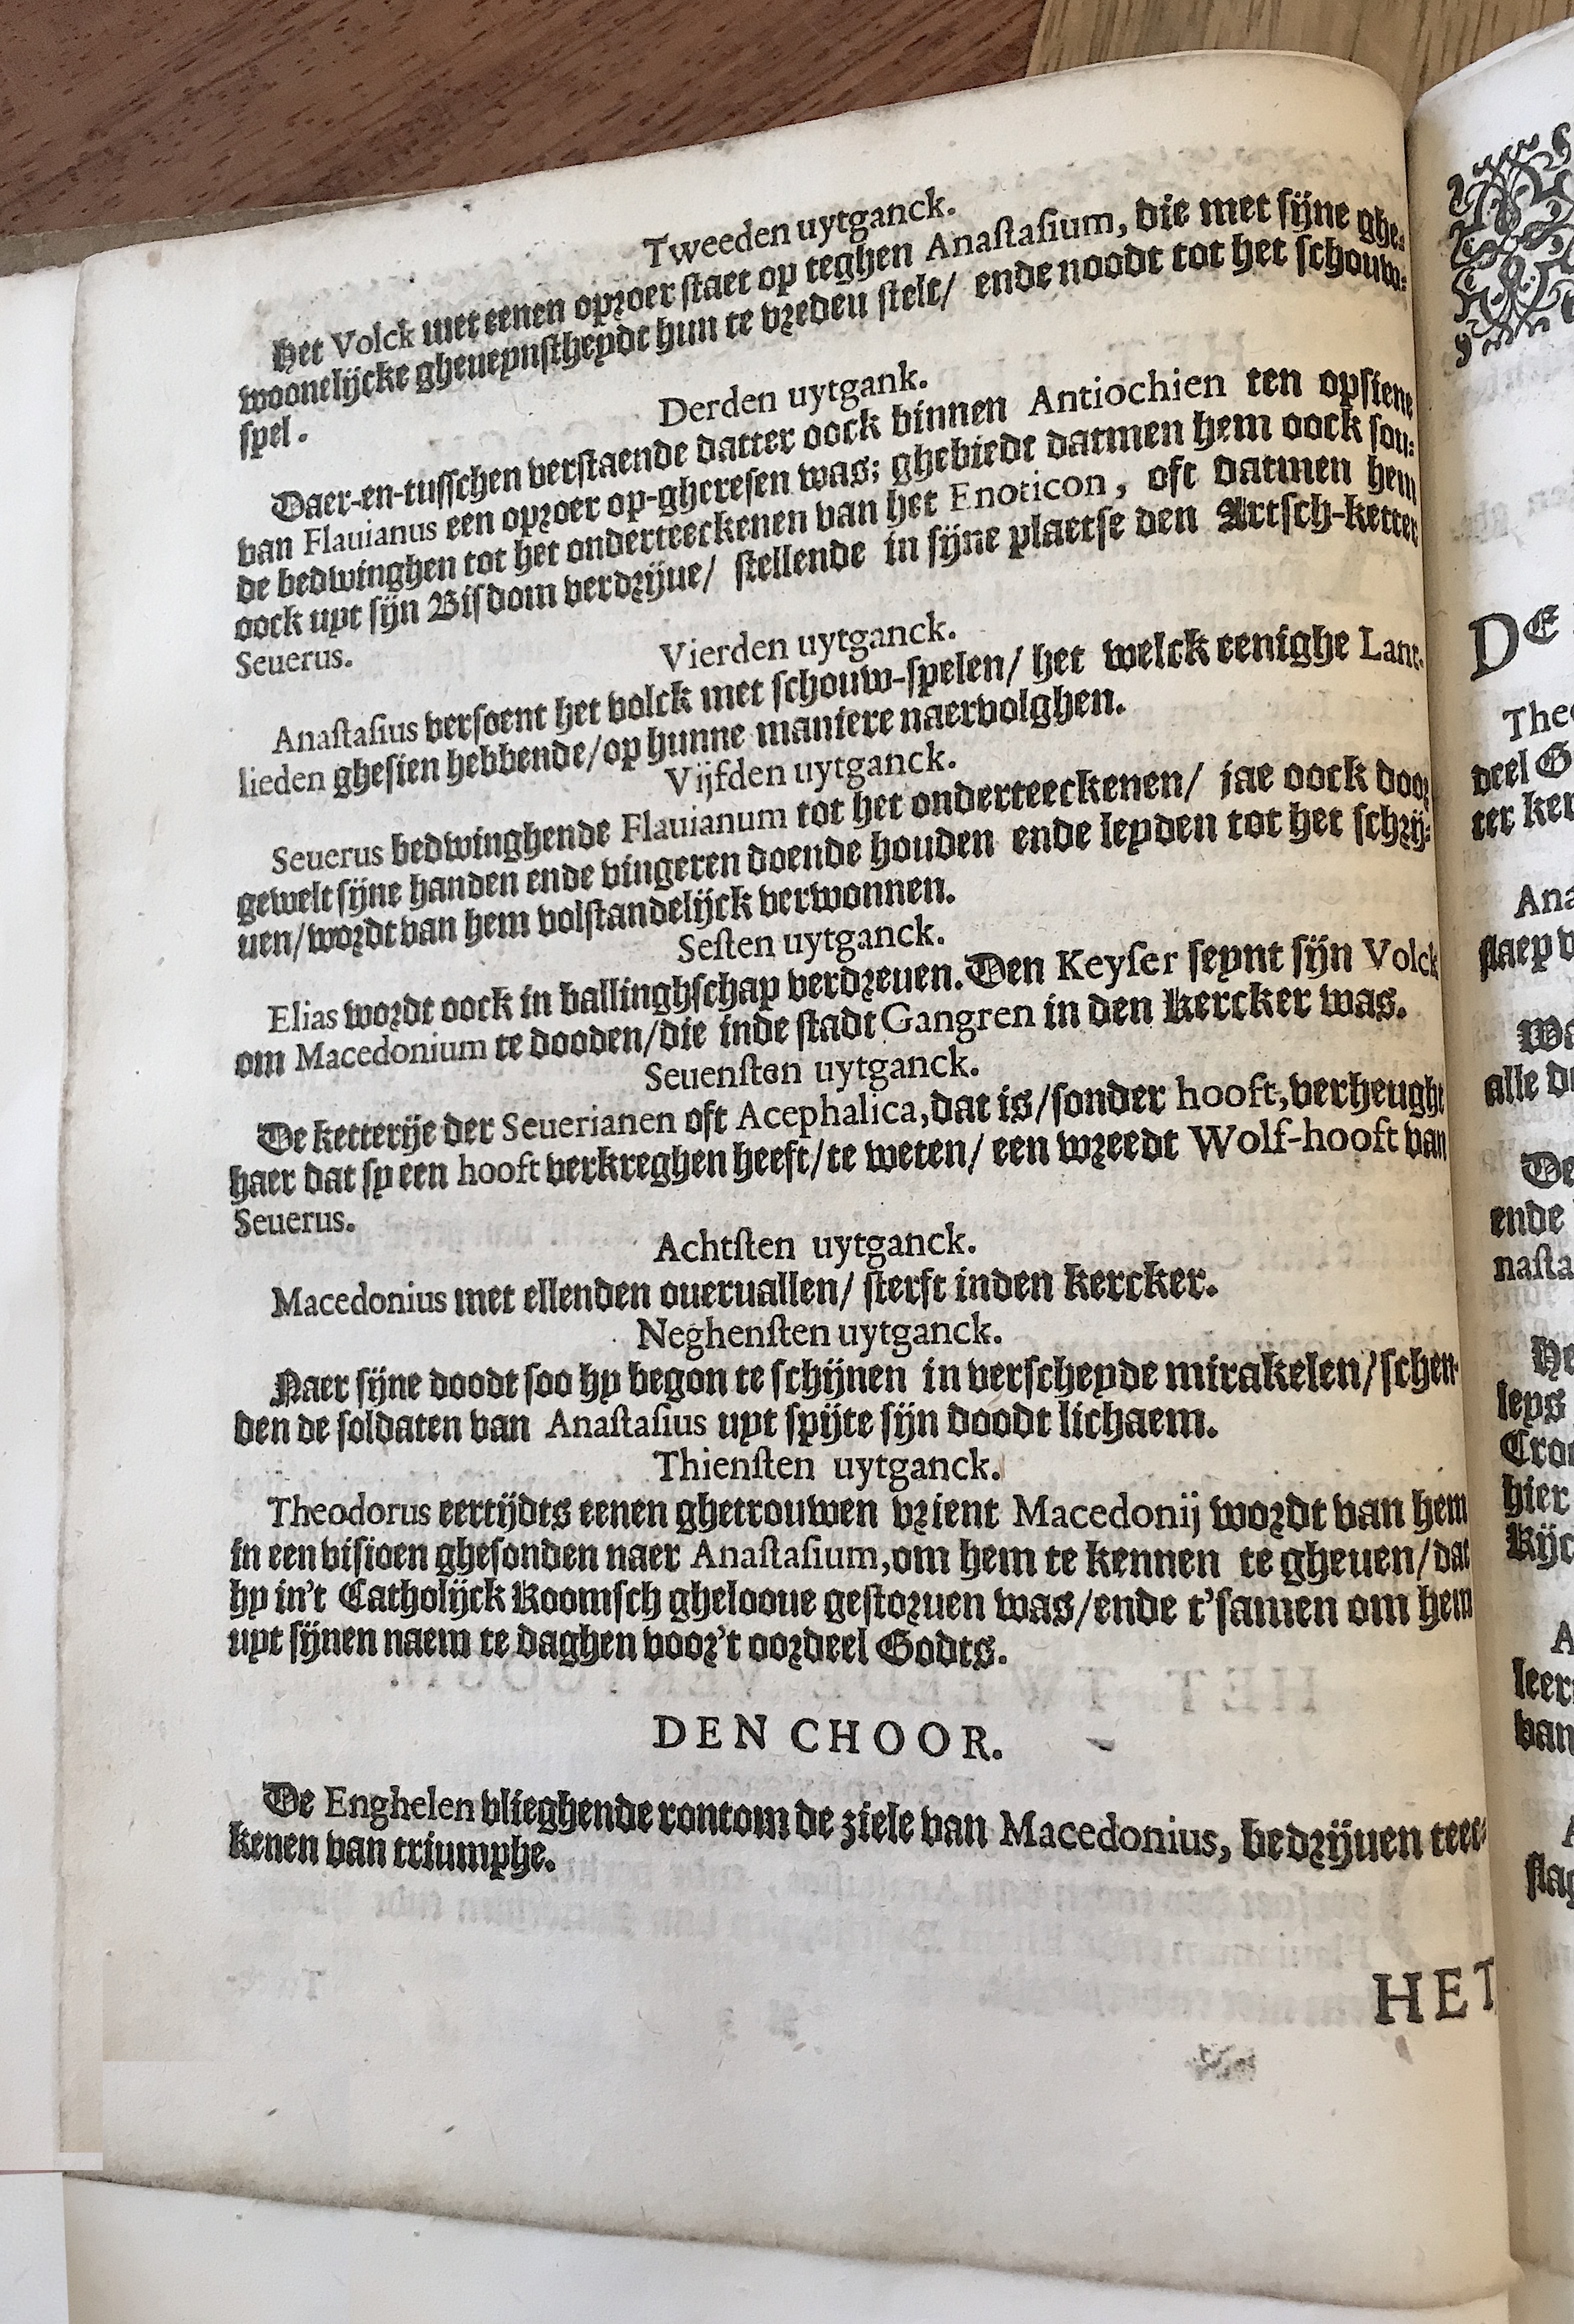 Tweeden uytganck.
Het Volck met eenen oproer staet op teghen Anastasium, die met sijne ghe-
woonelijcke gheueynstheydt hun te vreden stelt/ ende noodt tot het schouw-
spel.
Derden uytgank.
Daer-en-tusschen verstaende datter oock binnen Antiochien ten opsiene
van Flauianus een oproer op-gheresen was; ghebiedt datmen hem oock sou-
de bedwinghen tot het onderteeckenen van het Enoticon, oft datmen hem
oock uyt sijn Bisdom verdrijue/ stellende in sijne plaetse den Artsch-ketter
Seuerus.
Vierden uytganck.
Anastasius versoent het volck met schouw-spelen/ het welck eenighe Lant-
lieden ghesien hebbende/ op hunne maniere naervolghen.
Vijfden uytganck.
Seuerus bedwinghende Flauianum tot het onderteeckenen/ jae oock door
gewelt sijne handen ende vingeren doende houden ende leyden tot het schrij-
uen/ wordt van hem volstandelijck verwonnen.
Sesten uytganck.
Elias wordt oock in ballinghschap verdreuen. Den Keyser seynt sijn Volck
om Macedonium te dooden/ die inde stadt Gangren in den kercker was.
Seuensten uytganck.
De ketterije der Seuerianen oft Acephalica, dat is/ sonder hooft, verheught
haer dat sy een hooft verkreghen heeft/ te weten/ een wreedt Wolf-hooft van
Seuerus.
Achtsten uytganck.
Macedonius met ellenden oueruallen/ sterft inden kercker.
Neghensten uytganck.
Naer sijne doodt soo hy begon te schijnen in verscheyde mirakelen/ schen-
den de soldaten van Anastasius uyt spijte sijn doodt lichaem.
Thiensten uytganck.
Theodorus eertijdts eenen ghetrouwen vrient Macedonij wordt van hem
in een visioen ghesonden naer Anastasium, om hem te kennen te gheuen/ dat
hy in't Catholijck Roomsch ghelooue gestoruen was/ ende t'samen om hem
uyt sijnen naem te daghen voor't oordeel Godts.
DEN CHOOR.
De Enghelen vlieghende rontom de ziele van Macedonius, bedrijuen teec-
kenen van triumphe.
HET
DE
alle
ende
hier